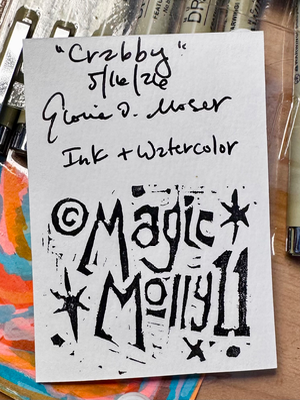 "Crabby"
5/16/26
Gloria D. Moser
Ink + Watercolor
© Magic
Molly 11